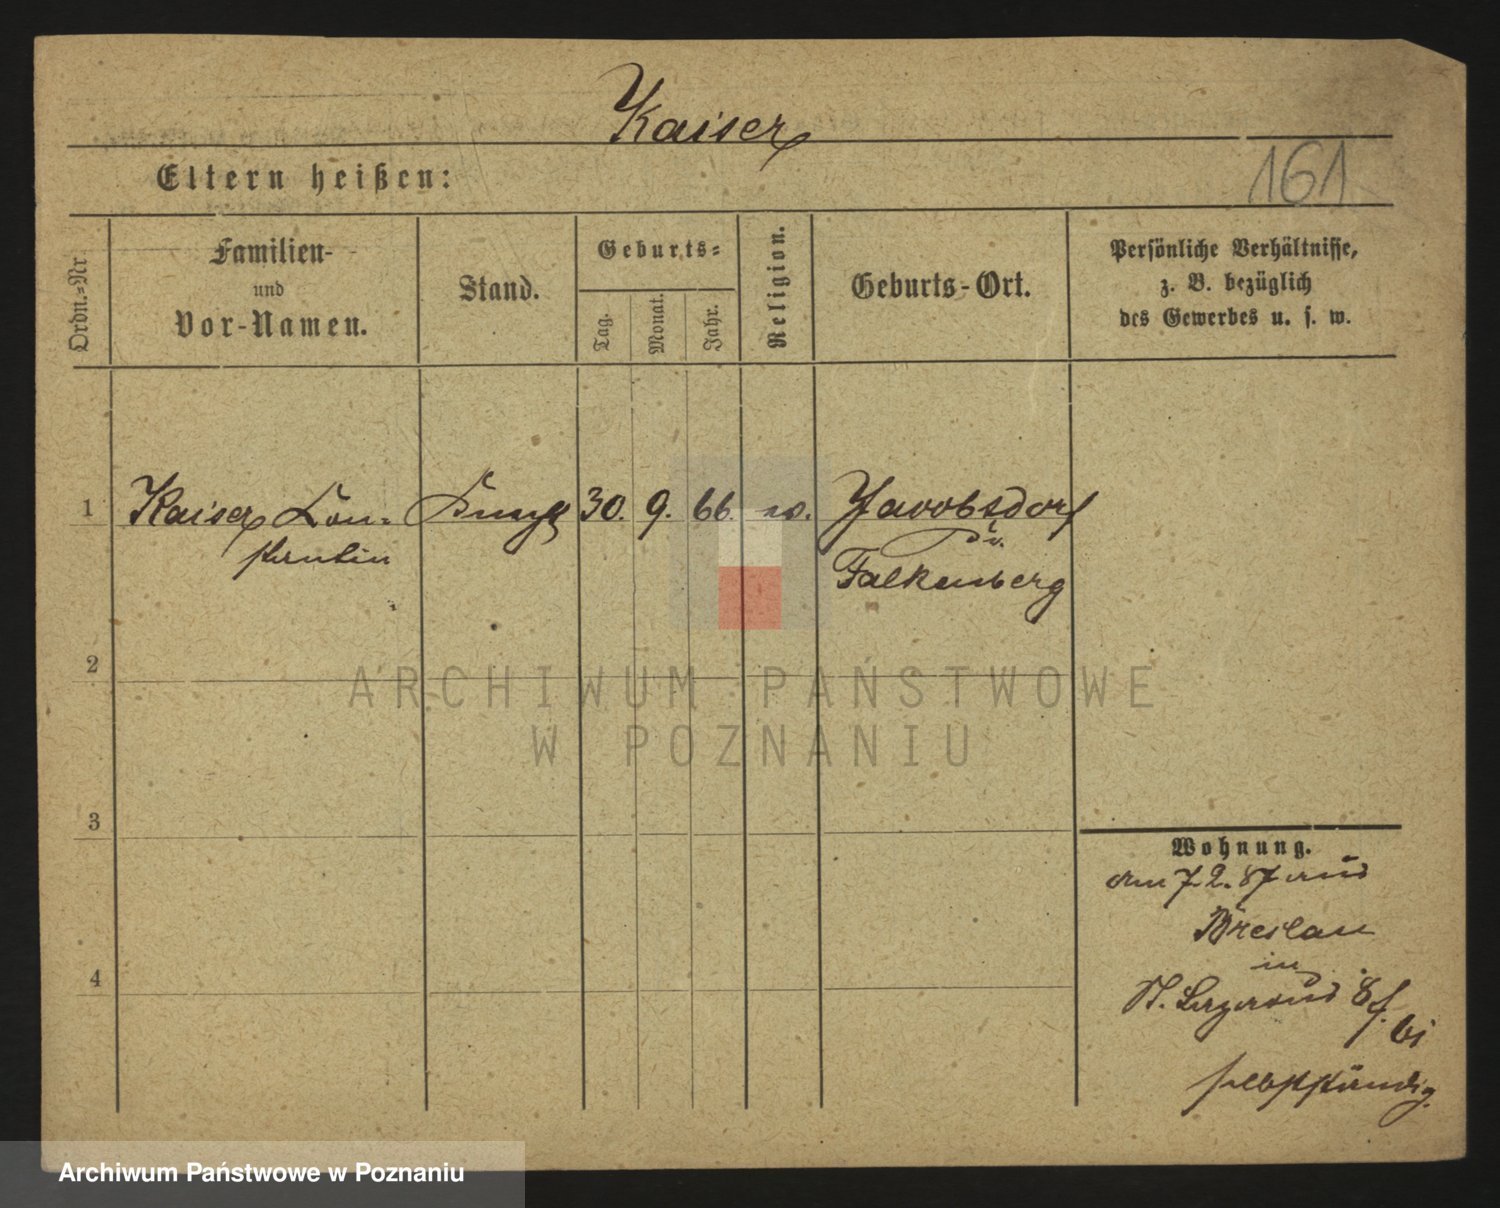 Kaiser
Eltern heißen:
161
Ordn.=Nr.
Familien-
und
Vor-Namen.
Stand.
Geburts=
Tag.
Monat.
Jahr.
Religion.
Geburts-Ort.
Persönliche Verhältnisse,
z. B. bezüglich
des Gewerbes u. s. w.
1
Kaiser Con-
stantin
30.
9.
66.
Jacobsdorf
Falkenberg
2
3
4
Wohnung.
am 7.2.87 aus
Breslau
in
St. Lazarus 8 f.
bi
selbstständig.
ARCHIWUM PAŃSTWOWE
W POZNANIU
Archiwum Państwowe w Poznaniu